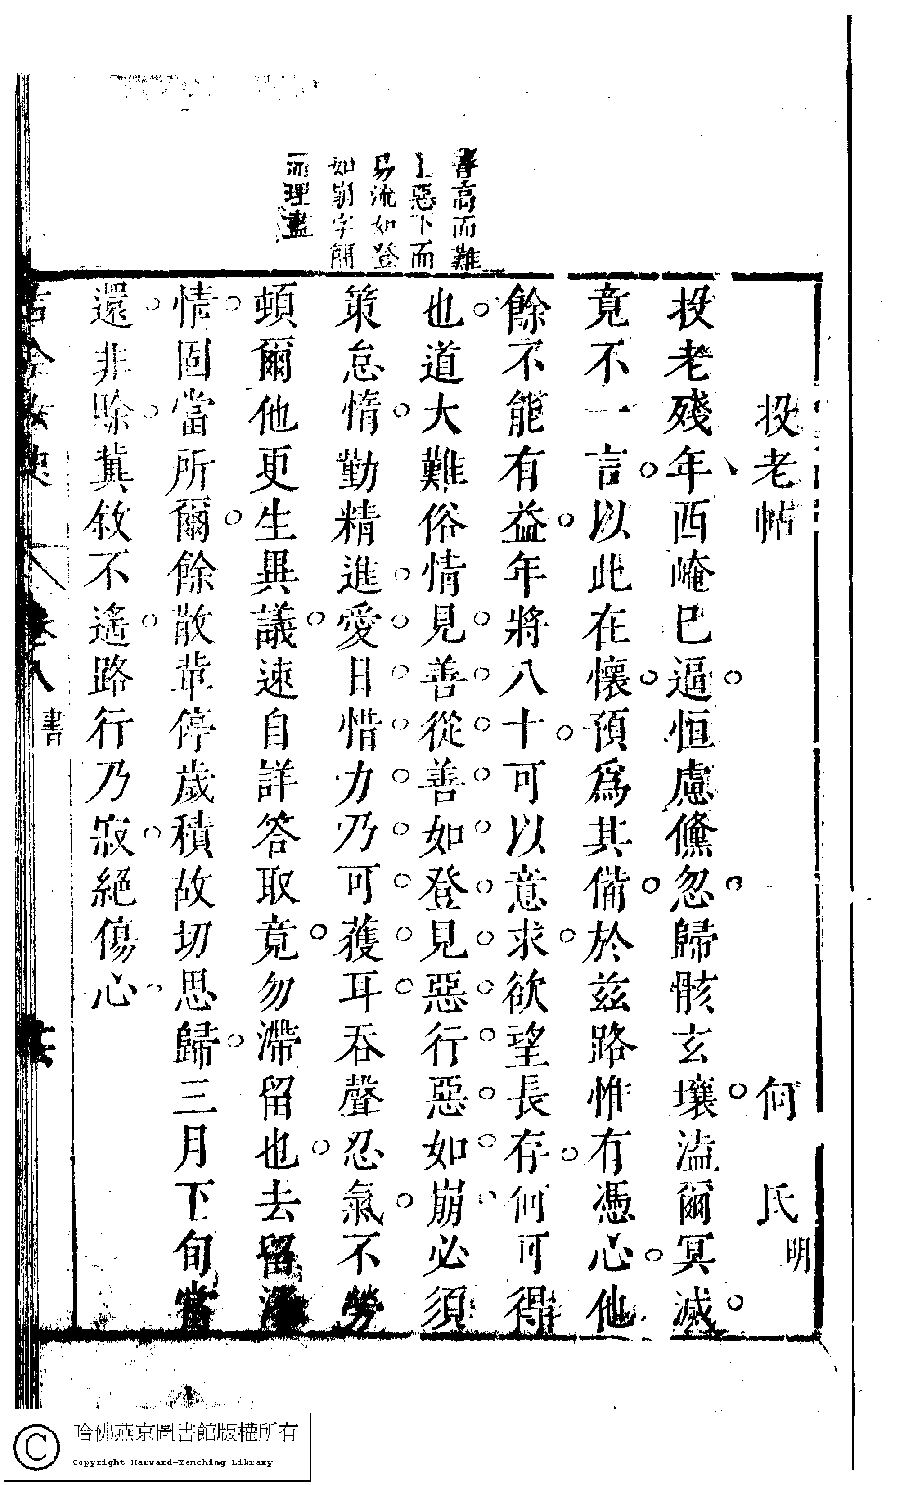 善高而難
上惡下而
易流如登
如崩字簡
而理盡
投老帖
何氏明
投老殘年西崦巳逼恒慮儵忽歸骸玄壤溘爾冥滅
竟不一言以此在懷預爲其備於兹路惟有憑心他
餘不能有益年將八十可以意求欲望長存何可得
也道大難俗情見善從善如登見惡行惡如崩必須
策怠惰勤精進愛日惜力乃可獲耳吞聲忍氣不勞
頓爾他更生異議速自詳答取竟勿滯留也去留
情固當所爾餘散輩停歲積故切思歸三月下旬當
還非賒冀敘不遙路行乃寂絕傷心
卷八
書
哈佛燕京圖書館版權所有
Copyright Harvard-Yenching Library